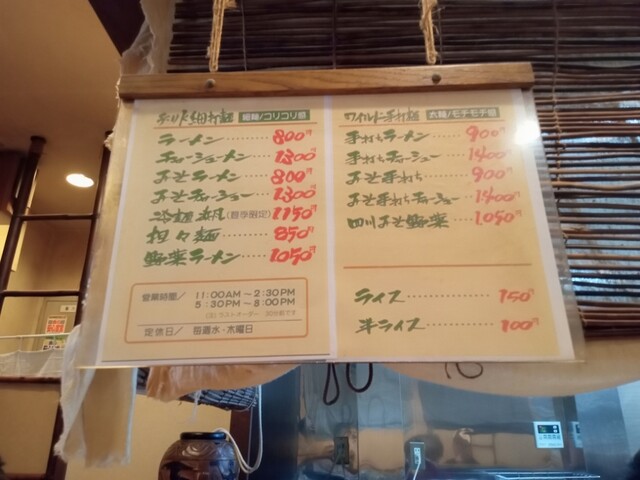 細打麺 細麺/コリコリ感
ラーメン 800円
チャーシューメン 1300円
みそラーメン 800円
みそチャーシュー 1300円
(春季限定) 1150円
担々麺 850円
野菜ラーメン 1050円
営業時間/ 11:00AM~2:30PM
5:30PM~8:00PM
(注)ラストオーダー 30分前です
定休日/ 毎週水・木曜日
ワイルド手打麺 太麺/モチモチ感
手打ちラーメン 900円
手打ちチャーシュー 1400円
みそ手打ち 900円
みそ手打ちチャーシュー 1400円
四川みそ野菜 1050円
ライス 150円
半ライス 100円